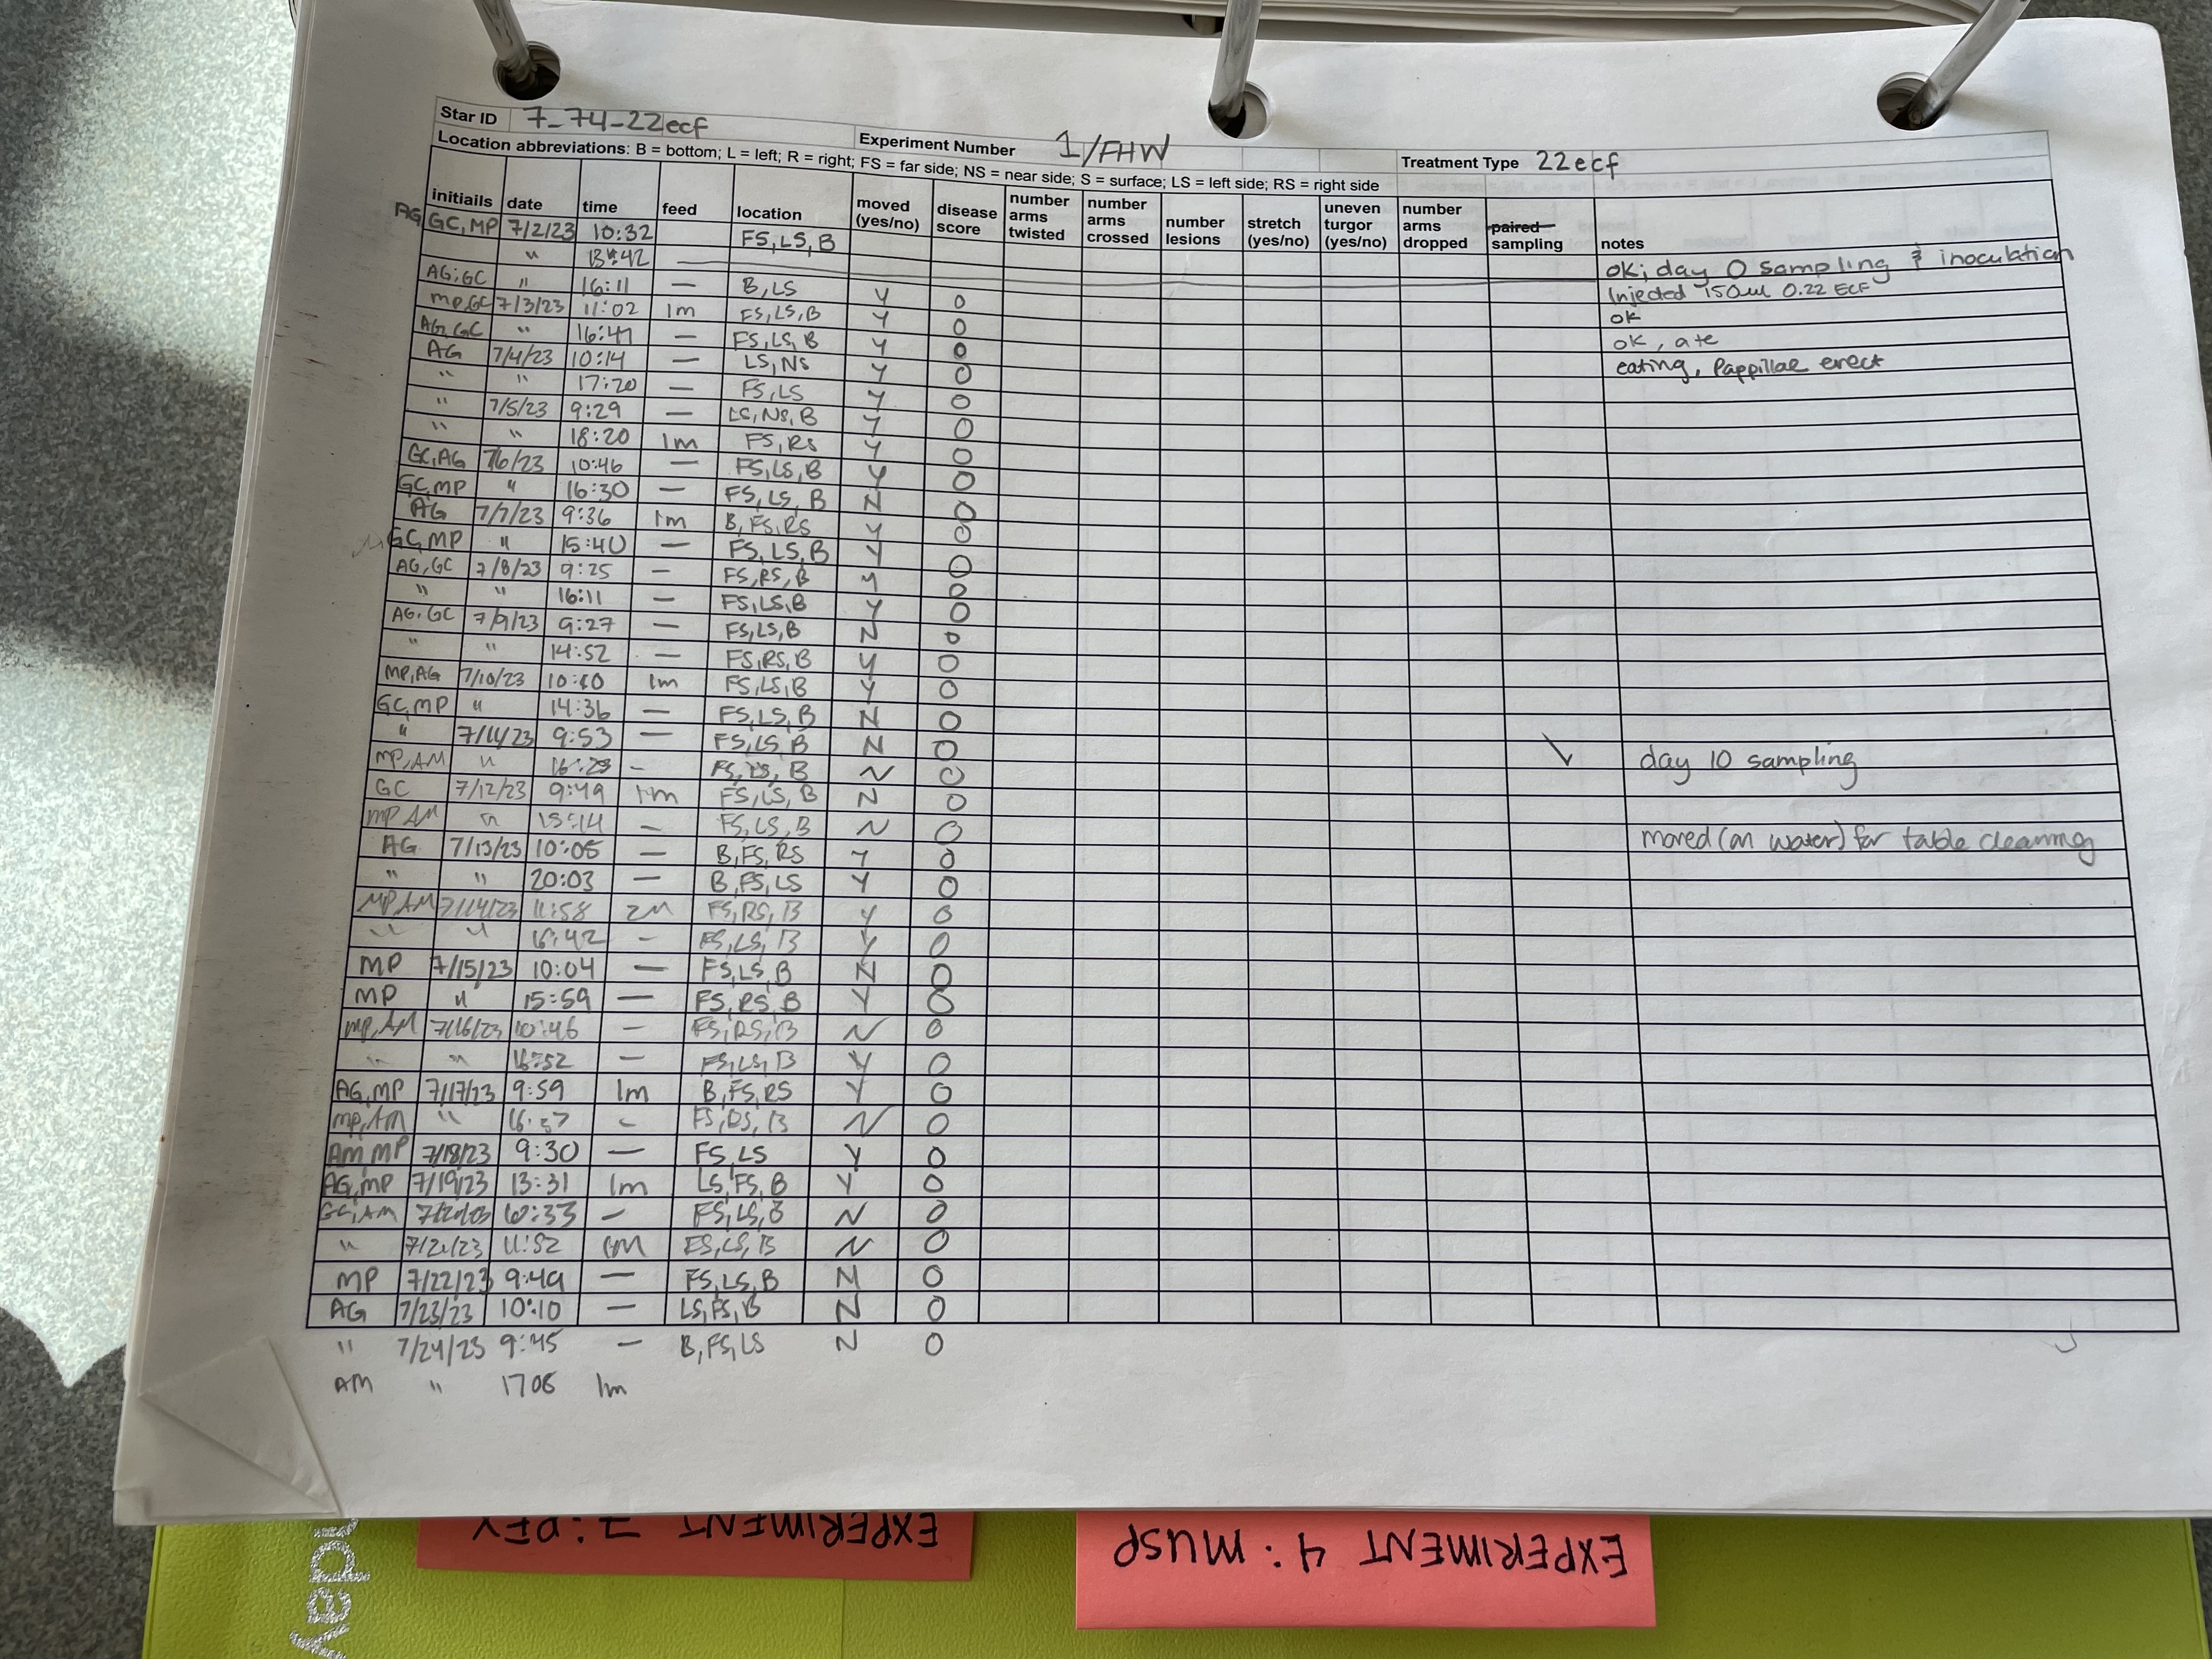 Star ID 7_74_22ecf Experiment Number 1/FHW Treatment Type 22ecf
Location abbreviations: B = bottom; L = left; R = right; FS = far side; NS = near side; S = surface; LS = left side; RS = right side
initiails date time feed location moved (yes/no) disease score number arms twisted number arms crossed number lesions stretch (yes/no) uneven turgor (yes/no) number arms dropped paired sampling notes
AG, GC, MP 7/2/23 10:32 FS, LS, B ok; day 0 sampling & inoculation
" 13:42 — Injected 150ul 0.22 ECF
AG; GC " 16:11 — B, LS Y 0 ok
MP, GC 7/3/23 11:02 1m FS, LS, B Y 0 ok, ate
AG, GC " 16:47 — FS, LS, B Y 0 eating, Pappillae erect
AG 7/4/23 10:14 — LS, NS Y 0
" " 17:20 — FS, LS Y 0
" 7/5/23 9:29 — LS, NS, B Y 0
" " 18:20 1m FS, RS Y 0
GC, AG 7/6/23 10:46 — FS, LS, B Y 0
GC, MP " 16:30 — FS, LS, B N 0
AG 7/7/23 9:36 1m B, FS, RS Y 0
GC, MP " 15:40 — FS, LS, B Y 0
AG, GC 7/8/23 9:25 — FS, RS, B Y 0
" " 16:11 — FS, LS, B Y 0
AG, GC 7/9/23 9:27 — FS, LS, B N 0
" " 14:52 — FS, RS, B Y 0
MP, AG 7/10/23 10:10 1m FS, LS, B Y 0
GC, MP " 14:36 — FS, LS, B N 0
" 7/11/23 9:53 — FS, LS, B N 0 day 10 sampling
MP, AM " 16:23 – FS, LS, B N 0
GC 7/12/23 9:49 1m FS, LS, B N 0
MP, AM " 15:14 – FS, LS, B N 0 moved (on water) for table cleaning
AG 7/13/23 10:05 — B, FS, RS Y 0
" " 20:03 — B, FS, LS Y 0
MP, AM 7/14/23 11:58 2M FS, RS, B Y 0
" " 16:42 – FS, LS, B Y 0
MP 7/15/23 10:04 — FS, LS, B N 0
MP " 15:59 — FS, RS, B Y 0
MP, AM 7/16/23 10:46 – FS, RS, B N 0
" " 16:52 – FS, LS, B Y 0
AG, MP 7/17/23 9:59 1m B, FS, RS Y 0
MP, AM " 16:37 – FS, RS, B N 0
AM, MP 7/18/23 9:30 — FS, LS Y 0
AG, MP 7/19/23 13:31 1m LS, FS, B Y 0
GC, AM 10:33 – FS, LS, B N 0
" 7/21/23 11:52 1M FS, LS, B N 0
MP 7/22/23 9:49 — FS, LS, B N 0
AG 7/23/23 10:10 — LS, FS, B N 0
" 7/24/23 9:45 — B, FS, LS N 0
AM " 1708 1m
EXPERIMENT 4: MUSP
EXPERIMENT 7:
day